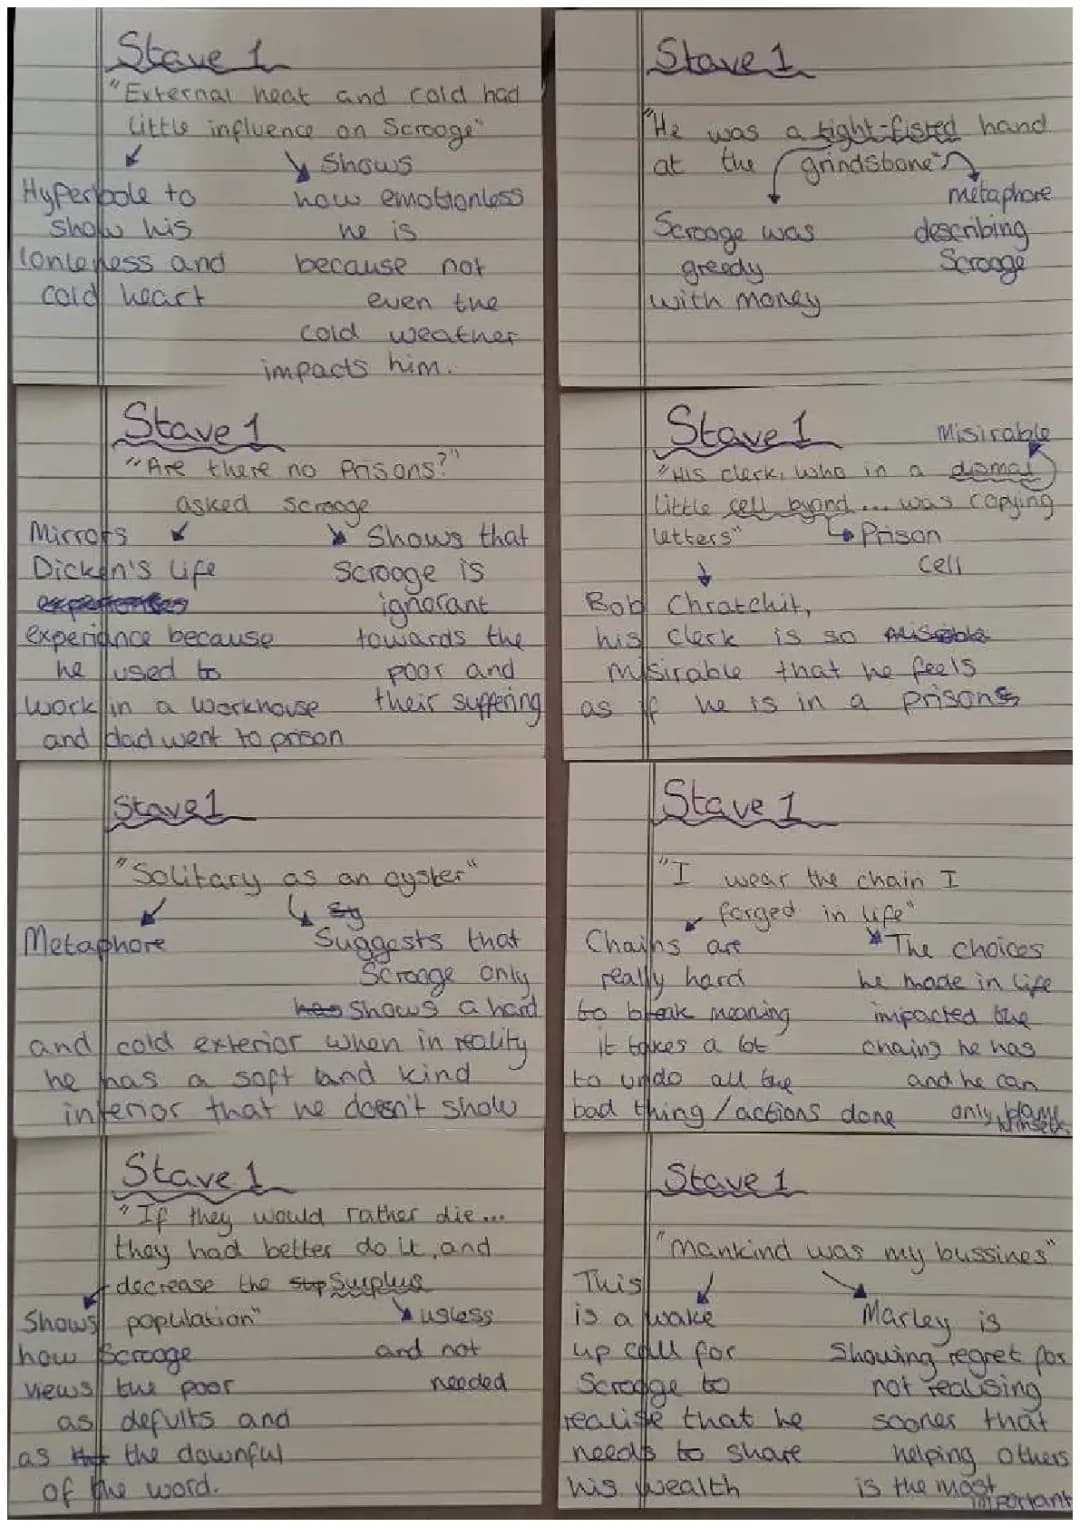 Stave 1
"External heat and cold had
little influence on Scrooge"
Hyperbole to
show his
lonleness and
cold heart
Shows
how emotionless
he is
because not
even the
cold weather
impacts him.
Stave 1
"He was a tight-fisted hand
at the grindstone"
Scrooge was
greedy
with money
metaphore
describing
Scrooge
Stave 1
"Are there no Prisons?"
asked scrooge
Mirrors
Dicken's life
experiance because
he used to
work in a workhouse
and dad went to prison
Shows that
Scrooge is
ignorant
towards the
poor and
their suffering
Stave 1
Misirable
"His clerk, who in a dismal
little cell byand... was copying
letters"
Prison
Cell
Bob Chratchit,
his clerk is so
misirable that he feels
as if he is in a prisons
Stave 1
"Solitary as an oyster"
Metaphore
Suggests that
Scrooge only
has shows a hard
and cold exterior when in reality
he has a soft and kind
interior that he doesn't show
Stave 1
"I wear the chain I
forged in life"
Chains are
really hard
to break meaning
it takes a lot
to undo all the
bad thing/actions done
The choices
he made in life
impacted the
chains he has
and he can
only blame
himself.
Stave 1
"If they would rather die...
they had better do it, and
decrease the Surplus
population"
Shows
how Scrooge
views the poor
as defults and
as the downful
of the word.
usless
and not
needed
Stave 1
"Mankind was my bussines"
This
is a wake
up call for
Scrooge to
realise that he
needs to share
his wealth
Marley is
Showing regret for
not realising
sooner that
helping others
is the most
important